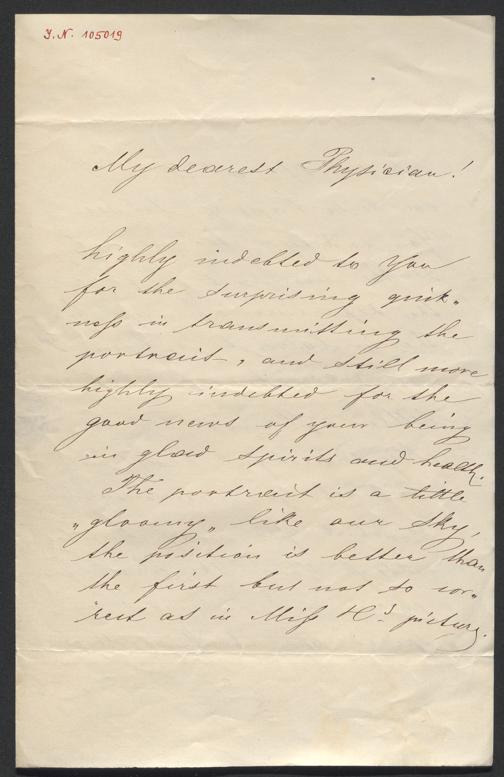 J.N. 105019
My dearest Physician!
highly indebted to You
for the surprising quick„
ness in transmitting the
portrait, and still more
highly indebted for the
good news of your being
in glad spirits and health.
The portrait is a little
„gloomy„ like our sky,
the position is better than
the first but not so cor„
rect as in Miss H's picture.